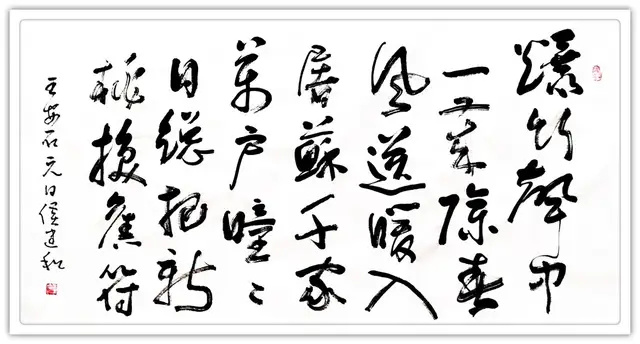 爆竹聲中
一歲除春
風送暖入
屠蘇千家
萬戶曈〻
日總把新
桃換舊符
王安石元日侯建和